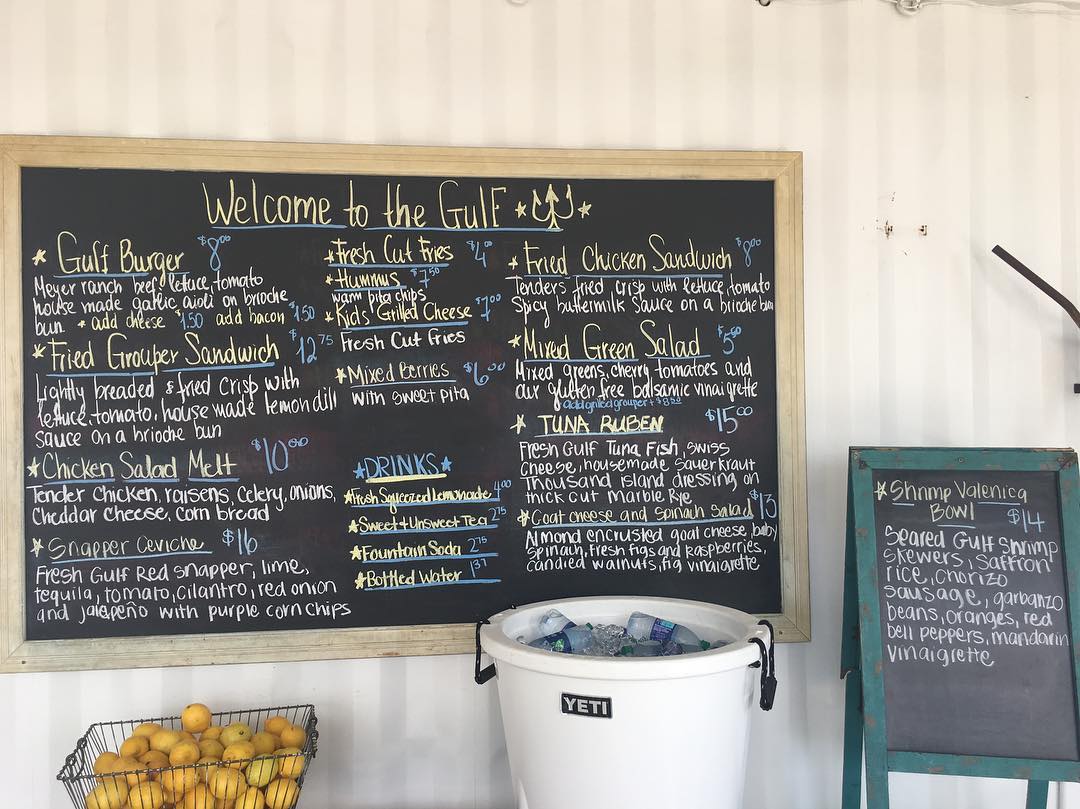 Welcome to the Gulf
Gulf Burger $8.00
Meyer ranch beef, lettuce, tomato
house made garlic aioli on brioche
bun * add cheese $1.50 add bacon $1.50
Fried Grouper Sandwich $12.75
Lightly breaded & fried crisp with
lettuce, tomato, house made lemon dill
sauce on a brioche bun
Chicken Salad Melt $10.00
Tender chicken, raisens, celery, onions,
Cheddar cheese, corn bread
Snapper Ceviche $16
Fresh Gulf Red snapper, lime,
tequila, tomato, cilantro, red onion
and jalepeño with purple corn chips
Fresh Cut Fries $4.00
Hummus $7.50
warm pita chips
Kids' Grilled Cheese $7.00
Fresh Cut Fries
Mixed Berries $6.00
with sweet pita
DRINKS
Fresh Squeezed Lemonade 4.00
Sweet & Unsweet Tea 2.75
Fountain Soda 2.75
Bottled Water 1.37
Fried Chicken Sandwich $8.00
Tenders fried crisp with lettuce, tomato
Spicy buttermilk sauce on a brioche bun
Mixed Green Salad $5.50
Mixed greens, cherry tomatoes and
our gluten free balsamic vinaigrette
add grilled grouper + $8.50
TUNA RUBEN $15.00
Fresh Gulf Tuna Fish, swiss
cheese, housemade sauerkraut
thousand island dressing on
thick cut marble rye
Goat cheese and spinach salad $13
Almond encrusted goat cheese, baby
spinach, fresh figs and raspberries,
candied walnuts, fig vinaigrette
Shrimp Valenica
Bowl $14
Seared Gulf shrimp
skewers, saffron
rice, chorizo
sausage, garbanzo
beans, oranges, red
bell peppers, mandarin
vinaigrette
YETI